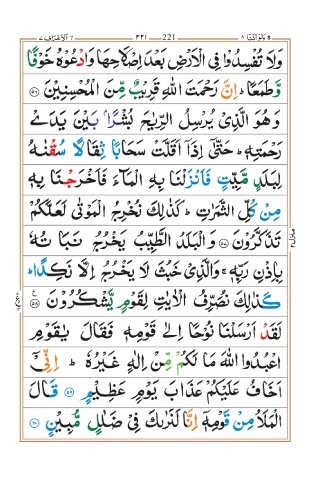 وَلَا تُفْسِدُوْا فِي الْاَرْضِ بَعْدَ اِصْلَاحِهَا وَادْعُوْهُ خَوْفًا
وَّطَمَعًا ؕ اِنَّ رَحْمَتَ اللّٰهِ قَرِيْبٌ مِّنَ الْمُحْسِنِيْنَ ۝۵۶
وَهُوَ الَّذِيْ يُرْسِلُ الرِّيٰحَ بُشْرًۢا بَيْنَ يَدَيْ
رَحْمَتِهٖ ؕ حَتّٰۤى اِذَاۤ اَقَلَّتْ سَحَابًا ثِقَالًا سُقْنٰهُ
لِبَلَدٍ مَّيِّتٍ فَاَنْزَلْنَا بِهِ الْمَآءَ فَاَخْرَجْنَا بِهٖ
مِنْ كُلِّ الثَّمَرٰتِ ؕ كَذٰلِكَ نُخْرِجُ الْمَوْتٰى لَعَلَّكُمْ
تَذَكَّرُوْنَ ۝۵۷ وَالْبَلَدُ الطَّيِّبُ يَخْرُجُ نَبَاتُهٗ
بِاِذْنِ رَبِّهٖ ۚ وَالَّذِيْ خَبُثَ لَا يَخْرُجُ اِلَّا نَكِدًا ؕ
كَذٰلِكَ نُصَرِّفُ الْاٰيٰتِ لِقَوْمٍ يَّشْكُرُوْنَ ۝۵۸
لَقَدْ اَرْسَلْنَا نُوْحًا اِلٰى قَوْمِهٖ فَقَالَ يٰقَوْمِ
اعْبُدُوا اللّٰهَ مَا لَكُمْ مِّنْ اِلٰهٍ غَيْرُهٗ ؕ اِنِّيْۤ
اَخَافُ عَلَيْكُمْ عَذَابَ يَوْمٍ عَظِيْمٍ ۝۵۹ قَالَ
الْمَلَاُ مِنْ قَوْمِهٖۤ اِنَّا لَنَرٰىكَ فِيْ ضَلٰلٍ مُّبِيْنٍ ۝۶۰